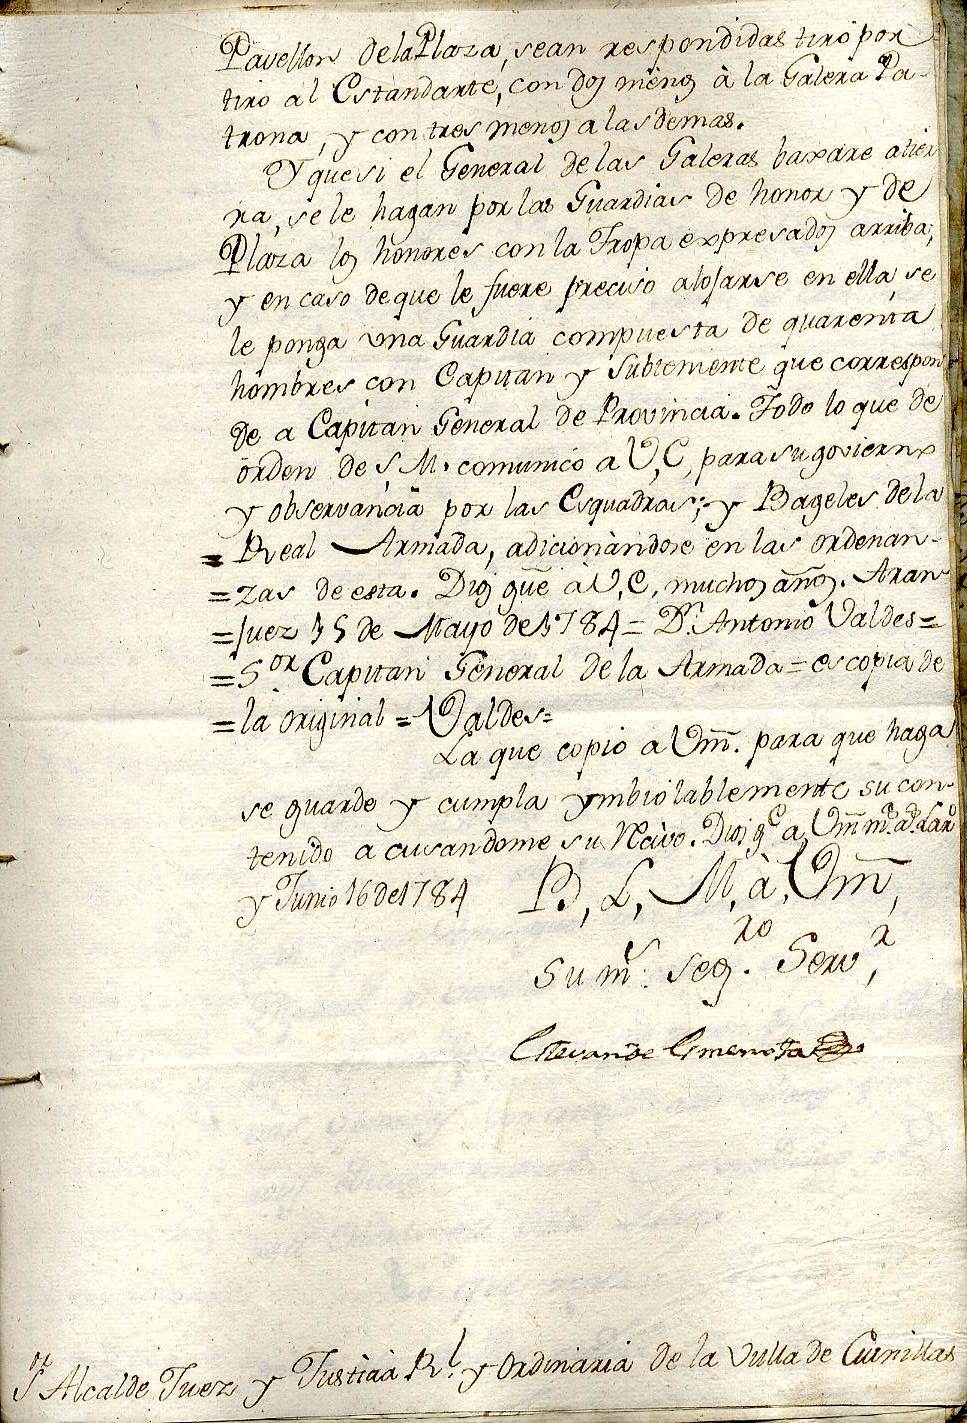 Pavellon de la Plaza, sean respondidas tiro por
tiro al Estandarte, con dos menos à la Galera Pa-
trona, y con tres menos a las demas.
Y que si el General de las Galeras baxare a tier
ra, se le hagan por las Guardias de honor y de
Plaza los honores con la Tropa expresados arriba;
y en caso de que le fuere preciso alojarse en ella, se
le ponga una Guardia compuesta de quarenta
hombres con Capitan y Subteniente que correspon
de a Capitan General de Provincia. Todo lo que de
orden de S, M. comunico a V, E, para su govierno
y observancia por las Esquadras; y Bageles de la
= Real Armada, adicionàndose en las ordenan-
= zas de esta. Dios gũe à V, E, muchos años. Aran
= juez 15 de Mayo de 1784 = Dn. Antonio Valdes =
= Sor Capitan General de la Armada = es copia de
= la original = Valdes =
La que copio a Vm̃. para que haga
se guarde y cumpla ymbiolablemente su con-
tenido acusandome su Recivo. Dios ge a Vm̃ ms. as.
y Junio 16 de 1784
B, L, M, à, Vm̃,
su ms. segro. Servr,
Estevan de
Sor Alcalde Juez y Justicia Rl. y Ordinaria de la Villa de